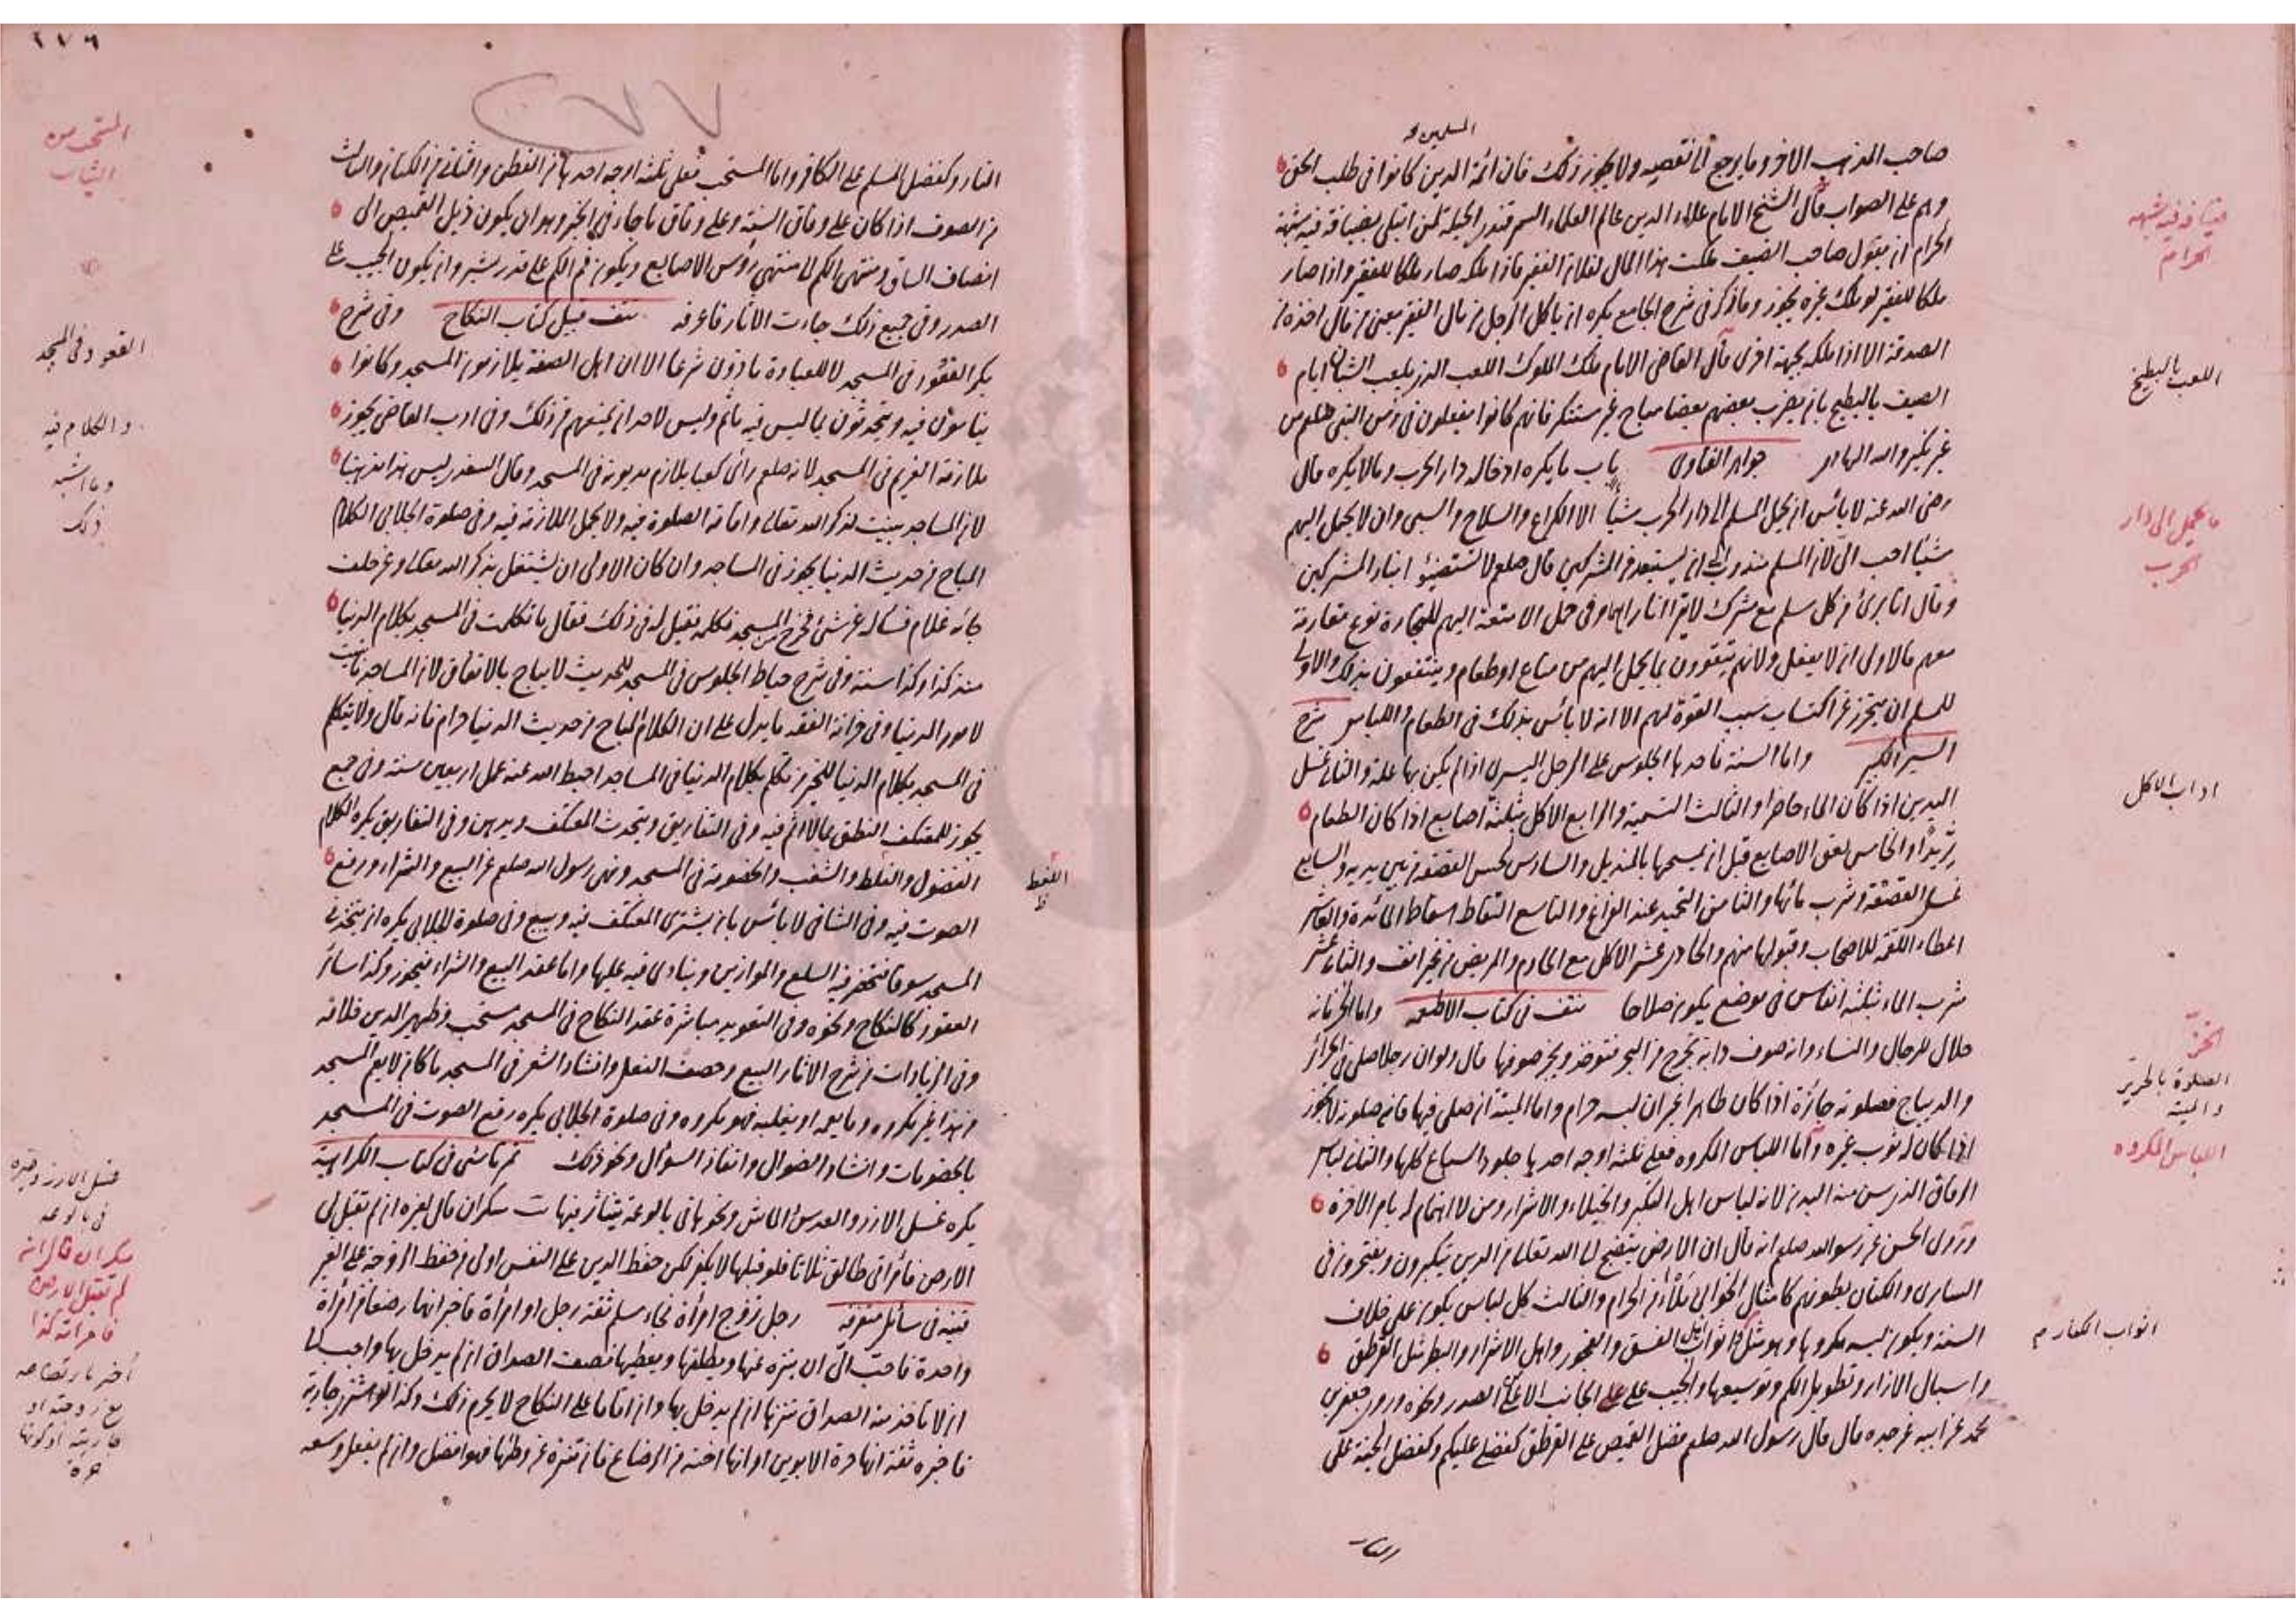 المسلمين
صاحب المذهب الاخر وما يرجع الى نقصه ولا يجوز ذلك فان ائمة الدين كانوا فى طلب الحق
وهم على الصواب قال الشيخ الامام علاء الدين عالم العلماء السمرقندى الحيلة لمن ابتلى بضيافة فيه شبهة
الحرام ان يقول صاحب الضيف ملكت هذا المال لفلان الفقير فاذا ملكه صار ملكا للفقير واذا صار
ملكا للفقير لو ملك غيره يجوز وما ذكر فى شرح الجامع يكره ان ياكل الرجل من مال الفقير يعنى من مال اخذه من
الصدقة الا اذا ملكه بجهة اخرى قال القاضى الامام ملك الملوك اللعب الذى يلعب الشبان ايام
الصيف بالبطيخ بان يضرب بعضهم بعضا مباح غير مستنكر فانهم كانوا يفعلون فى زمن النبى صلعم من
غير نكير والله الهادى جواهر الفتاوى باب ما يكره ادخاله دار الحرب وما لا يكره قال
رضى الله عنه لا بائس ان يحمل المسلم الى دار الحرب شيأ الا الكراع والسلاح والسبى وان لا يحمل اليهم
شيئا احب الى لان المسلم مندوب الى ان يستبعد من المشركين قال صلعم لا تستضيئوا بنار المشركين
وقال انا برئ من كل مسلم مع مشرك لا يترااا ناراهما وفى حمل الامتعة اليهم للتجارة نوع مقاربة
معهم فالاولى ان لا يفعل ولانهم يتقوون بما يحمل اليهم من متاع او طعام وينتفعون بذلك والاولى
للمسلم ان يتحرز عن اكتساب سبب القوة لهم الا انه لا بائس بذلك فى الطعام واللباس شرح
السير الكبير واما السنة فاحدها الجلوس على الرجل اليسرى اذا لم يكن بها علة والثانى غسل
اليدين اذا كان الماء حاضرا والثالث التسمية والرابع الاكل بثلثة اصابع اذا كان الطعام
ثريدا والخامس لعق الاصابع قبل ان يمسحها بالمنديل والسادس لحس القصعة من بين يديه والسابع
غسل القصعة وشرب مائها والثامن التحميد عند الفراغ والتاسع التقاط اسقاط المائدة والعاشر
اعطاء اللقمة للاصحاب وقبولها منهم والحادى عشر الاكل مع الخادم والمريض من غير انف والثانى عشر
شرب الماء بثلثة انفاس فى موضع يكون صلاحا نتف فى كتاب الاطعمه واما الخز فانه
حلال للرجال والنساء وانه صوف دابة تخرج من البحر فتوخذ ويجز صوفها قال ولو ان رجلا صلى فى الحرائر
والديباج فصلوته جائزة اذا كان طاهرا غير ان لبسه حرام واما الميتة ان صلى فيها فان صلوته لا تجوز
اذا كان له ثوب غيره واما اللباس المكروه فعلى ثلثة اوجه احدها جلود السباع كلها والثانى لباس
الرقاق الذى يرى منه البدن لانه لباس اهل التكبر والخيلاء والاشرار ومن لا اهتمام له بام الاخرة
وروى الحسن عن رسول الله صلعم انه قال ان الارض يتضج الى الله تعالى من الذين يتكبرون ويفتخرون فى
السابرى والكتان بطونهم كامثال الخوابى ملأى من الحرام والثالث كل لباس يكون على خلاف
السنة ويكون لبسه مكروها وهو مثل اثواب اهل الفسق والفجور واهل الاشرار والبطر مثل القرطق
واسبال الازار وتطويل الكم وتوسيعها والجيب على الجانب الاعلى الصدر ونحوه وروى جعفر بن
محمد عن ابيه عن جده قال قال رسول الله صلعم فضل القميص على القرطق كفضلى عليكم وكفضل الجنة على
النار
ضيافه فيه شبهه
الحرام
اللعب بالبطيخ
ما يحمل الى دار
الحرب
اداب الاكل
الخز
الصلوة بالحرير
والميته
اللباس المكروه
٢٧٦
٢٧٧
النار وكفضل المسلم على الكافر واما المستحب فعلى ثلثة اوجه احدها من القطن والثانى من الكتان والثالث
من الصوف اذا كان على وفاق السنة وعلى وفاق ما جاء فى الخبر وهو ان يكون ذيل القميص الى
انصاف الساق ومنتهى الكم الى منتهى رؤس الاصابع ويكون فم الكم على قدر شبر وان يكون الجيب على
الصدر وفى جميع ذلك جاءت الاثار فاعرفه نتف قبل كتاب النكاح وفى شرح
بكر القعود فى المسجد لا للعبادة ماذون شرعا الا ان اهل الصفة يلازمون المسجد وكانوا
ينامون فيه ويتحدثون بما ليس فيه ماثم وليس لاحد ان يمنعهم من ذلك وفى ادب القاضى يجوز
ملازمة الغريم فى المسجد لانه صلعم راى كعبا يلازم مديونه فى المسجد وقال السغدى ليس هذا مذهبنا
لان المساجد بنيت لذكر الله تعالى واقامة الصلوة فيه ولا يحمل اللازمة فيه وفى صلوة الجلابى الكلام
المباح من حديث الدنيا يجوز فى المساجد وان كان الاولى ان يشتغل بذكر الله تعالى وعن خلف
جائه غلام فساله عن شئ فخرج من المسجد فكلمه فقيل له فى ذلك فقال ما تكلمت فى المسجد بكلام الدنيا
منذ كذا وكذا سنة وفى شرح حياط الجلوس فى المسجد للحديث لا يباح بالاتفاق لان المساجد ما بنيت
لامور الدنيا وفى خزانة الفقه ما يدل على ان الكلام المباح من حديث الدنيا حرام فانه قال ولا يتكلم
فى المسجد بكلام الدنيا للخبر من تكلم بكلام الدنيا فى المساجد احبط الله عنه عمل اربعين سنة وفى جمع
يجوز للمعتكف النطق بما لا اثم فيه وفى التفاريق ويتحدث المعتكف ويدهن وفى التفاريق يكره الكلام
الفضول والغلط والشغب والخصومة فى المسجد ونهى رسول الله صلعم عن البيع والشراء ورفع
الصوت فيه وفى الشافى لا بائس بان يشترى المعتكف فيه ويبيع وفى صلوة الجلابى يكره ان يتخذ
المسجد سوقا فتحضر فيه السلع والموازين وينادى فيه عليها واما عقد البيع والشراء فيجوز وكذا سائر
العقود كالنكاح ونحوه وفى التعويد مباشرة عقد النكاح فى المسجد مستحب وظهير الدين خلافه
وفى الزيادات من شرح الاثار البيع وخصف النعل وانشاد الشعر فى المسجد ما كان لا يعم المسجد
من هذا غير مكروه وما يعمه او يغلبه فهو مكروه وفى صلوة الجلابى يكره رفع الصوت فى المسجد
بالخصومات وانشاد الضوال وانفاذ السوال ونحو ذلك تمرتاشى فى كتاب الكراهية
يكره غسل الارز والعدس والماش ونحوها فى بالوعة يتناثر فيها سكران قال لغيره ان لم تقبل لى
الارض فامراتى طالق ثلاثا فلو قبلها لا يكفر لكن حفظ الدين على النفس اولى من حفظ الزوجة على الغير
قنيه فى مسائل متفرقه رجل تزوج امرأة فجاء مسلم ثقة رجل او امرأة فاخبر انها رضعا من امرأة
واحدة فاحب الى ان يتنزه عنها ويطلقها ويعطيها نصف الصداق ان لم يدخل بها واحب لها
ان لا تاخذ منه الصداق تنزها ان لم يدخل بها وان اقاما على النكاح لا يحرم ذلك وكذا لو اشترى جارية
فاخبره ثقة انها حرة الابوين او انها اخته من الرضاع فان تنزه عن وطئها فهو افضل وان لم يفعل وسعه
المستحب من
الثياب
القعود فى المسجد
والكلام فيه
وما اشبه
ذلك
اللغط
ظ
غسل الارز وغيره
فى بالوعه
سكران قال ان
لم تقبل الارض
فامراته كذا